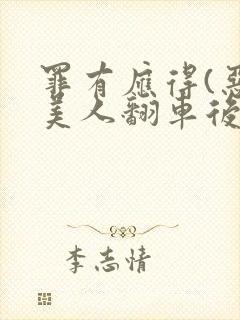 罪有應得(惡
美人翻車後
李志情